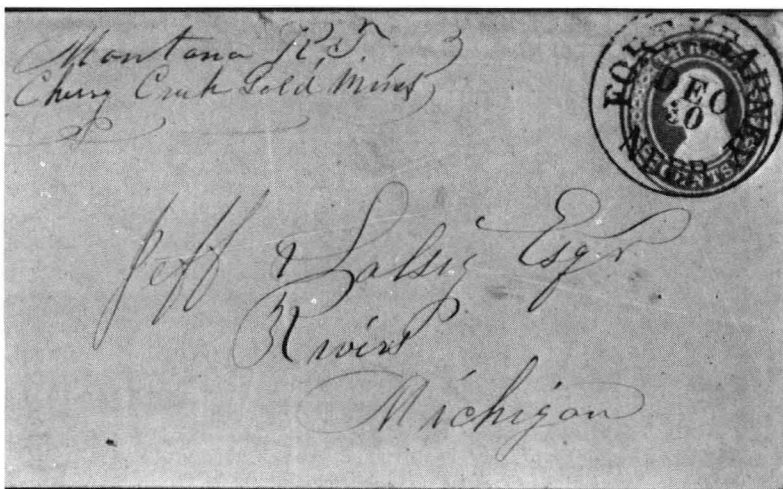 Montana K.T.
Cherry Creek Gold Mines
FORT KEARNEY
DEC
30
NEB. T.
CENTS
Jeff Esqr
Rives
Michigan